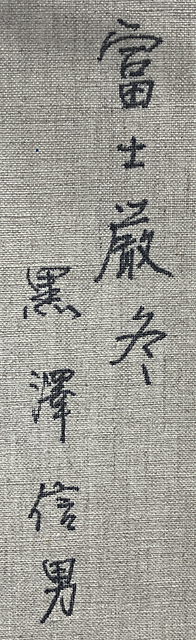 富士厳冬
黒澤信男